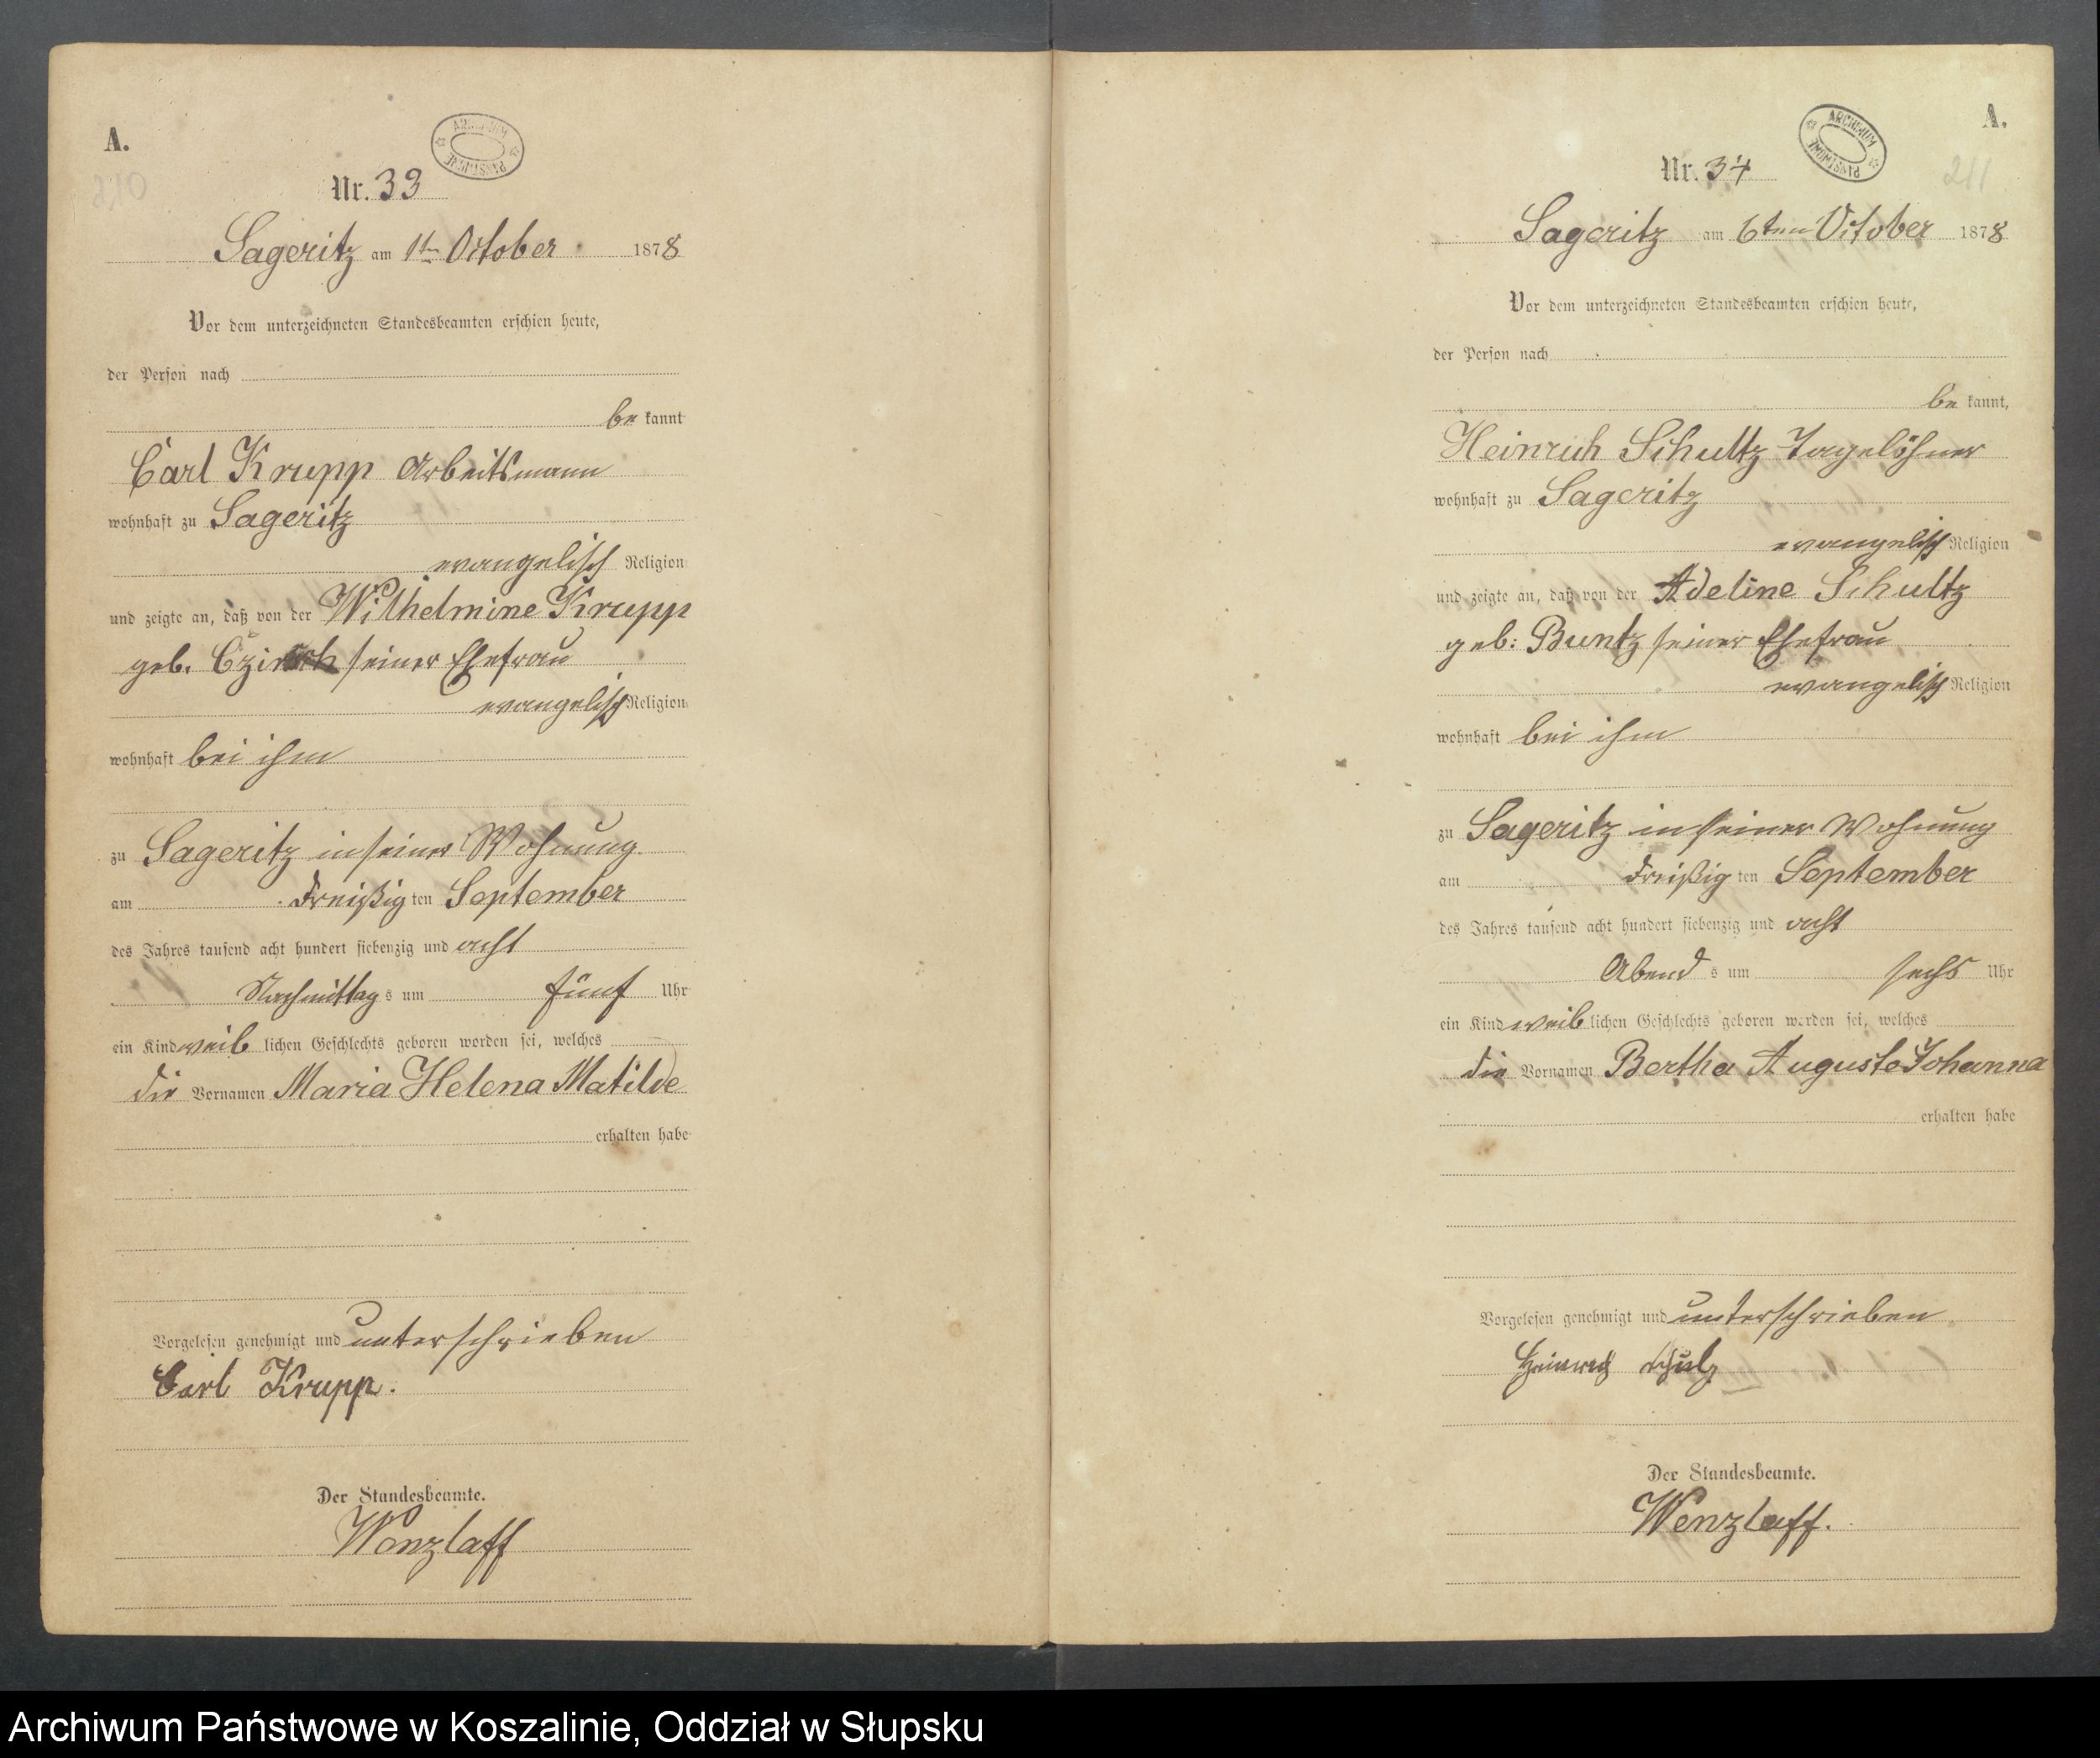 A.
210
ARCHIWUM PAŃSTWOWE
Nr. 33
Sageritz am 1ten October 1878
Vor dem unterzeichneten Standesbeamten erschien heute,
der Person nach
be kannt
Carl Krupp Arbeitsmann
wohnhaft zu Sageritz
evangelisch Religion
und zeigte an, daß von der Wilhelmine Krupp
geb. seiner Ehefrau
evangelisch Religion
wohnhaft bei ihm
zu Sageritz in seiner Wohnung
am dreißig ten September
des Jahres tausend acht hundert siebenzig und acht
Nachmittag s um fünf Uhr
ein Kind weib lichen Geschlechts geboren worden sei, welches
die Vornamen Maria Helena Matilde
erhalten habe
Vorgelesen genehmigt und unterschrieben
Carl Krupp.
Der Standesbeamte.
Wenzlaff
A.
211
ARCHIWUM PAŃSTWOWE
Nr. 34
Sageritz am 6ten October 1878
Vor dem unterzeichneten Standesbeamten erschien heute,
der Person nach
be kannt,
Heinrich Schultz Tagelöhner
wohnhaft zu Sageritz
evangelisch Religion
und zeigte an, daß von der Adeline Schultz
geb: Buntz seiner Ehefrau
evangelisch Religion
wohnhaft bei ihm
zu Sageritz in seiner Wohnung
am dreißig ten September
des Jahres tausend acht hundert siebenzig und acht
Abend s um sechs Uhr
ein Kind weib lichen Geschlechts geboren worden sei, welches
die Vornamen Bertha Auguste Johanna
erhalten habe
Vorgelesen genehmigt und unterschrieben
Heinrich Schulz
Der Standesbeamte.
Wenzlaff.
Archiwum Państwowe w Koszalinie, Oddział w Słupsku